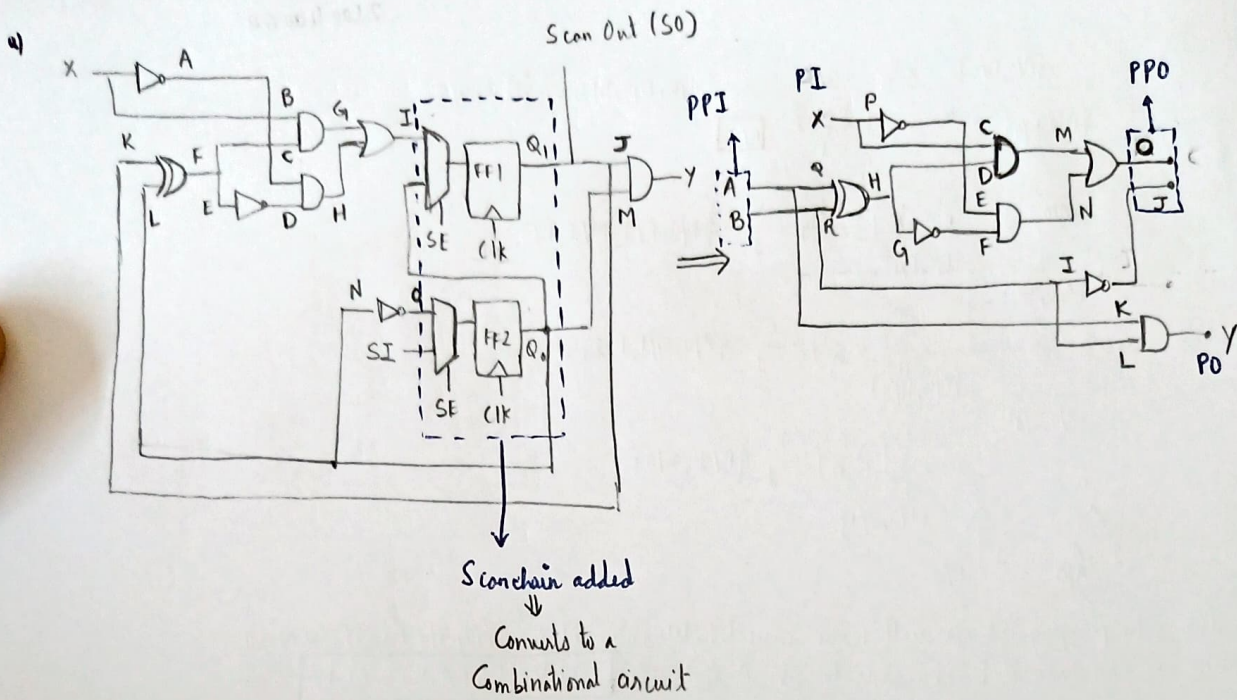 a)
Scan Out (SO)
X
A
B
G
I
K
F
C
L
E
D
H
FF1
Q1
SE
Clk
J
M
Y
N
SI
FF2
Q0
SE
Clk
Scanchain added
Converts to a
Combinational circuit
PPI
A
B
PI
X
P
Q
R
H
G
C
D
E
F
M
N
PPO
O
J
I
K
L
Y
PO